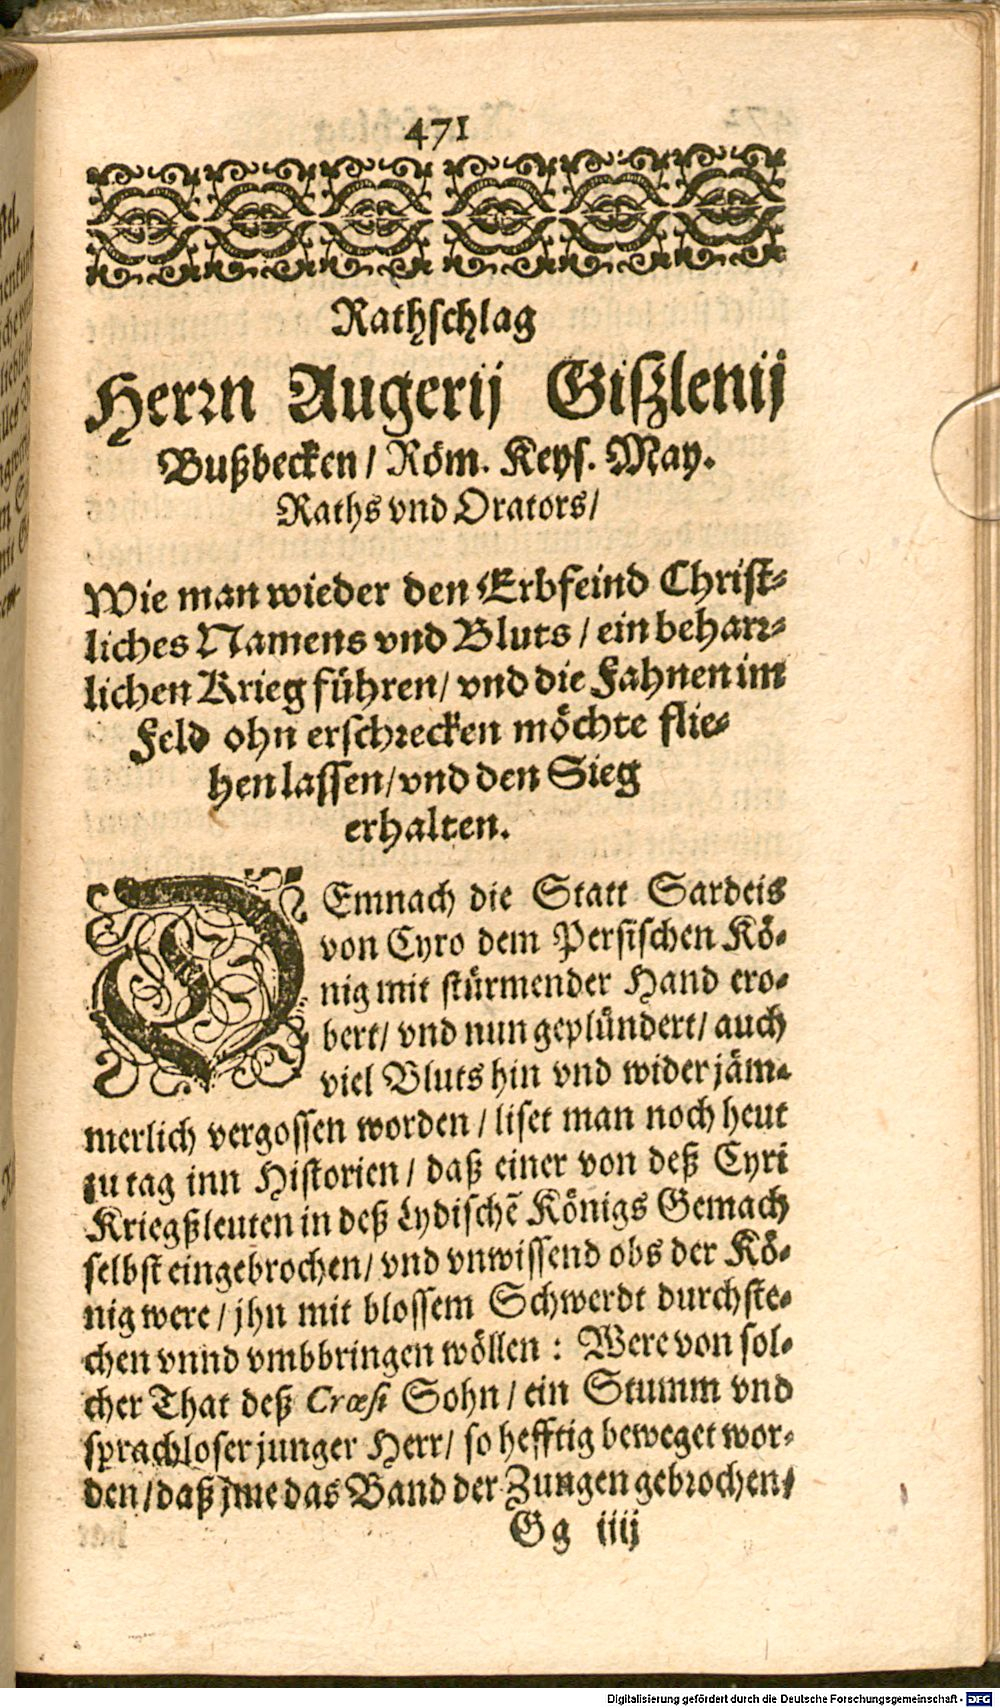 471
Rathſchlag
Herꝛn Augerij Giſzlenij
Bußbecken / Röm. Keyſ. May.
Raths vnd Orators /
Wie man wieder den Erbfeind Chriſt⸗
liches Namens vnd Bluts / ein beharꝛ⸗
lichen Krieg führen / vnd die Fahnen im
Feld ohn erſchꝛecken möchte flie⸗
hen laſſen / vnd den Sieg
erhalten.
DEmnach die Statt Sardeis
von Cyro dem Perſiſchen Kö⸗
nig mit ſtürmender Hand ero⸗
bert / vnd nun geplündert / auch
viel Bluts hin vnd wider jäm⸗
merlich vergoſſen worden / liſet man noch heut
zu tag inn Hiſtorien / daß einer von deß Cyri
Kriegßleuten in deß Lydiſchẽ Königs Gemach
ſelbſt eingebrochen / vnd vnwiſſend obs der Kö⸗
nig were / jhn mit bloſſem Schwerdt durchſte⸗
chen vnnd vmbbringen wöllen : Were von ſol⸗
cher That deß Crœſi Sohn / ein Stumm vnd
ſprachloſer junger Herr / ſo hefftig beweget wor⸗
den / daß jme das Band der Zungen gebꝛochen /
Gg iiij
Digitalisierung gefördert durch die Deutsche Forschungsgemeinschaft - DFG